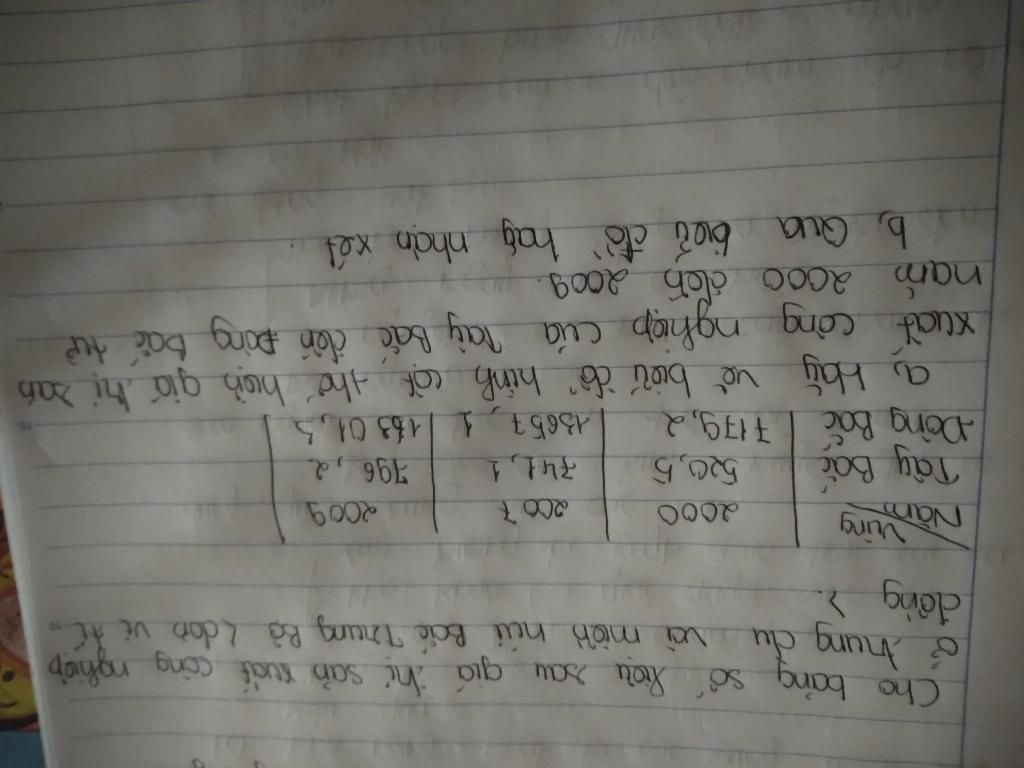 Cho bảng số liệu sau giá trị sản xuất công nghiệp
ở trung du và miền núi Bắc Trung Bộ < đơn vị tỉ
đồng >
Vùng Năm 2000 2007 2009
Tây Bắc 520,5 741,1 796,2
Đông Bắc 7179,2 13657,1 16301,3
a, Hãy vẽ biểu đồ hình cột thể hiện giá trị sản
xuất công nghiệp của Tây Bắc đến Đông Bắc từ
năm 2000 đến 2009.
b, Qua biểu đồ hãy nhận xét.